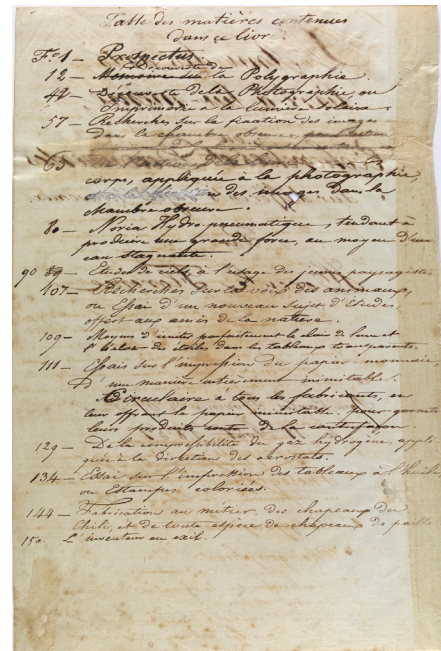 Table des matières contenues
dans ce livre.
F.o 1 — Prospectus
Découverte de
12 — Mémoire sur la Polygraphie.
42 — Découverte de la Photographie, ou
Imprimerie à la lumière solaire.
57 — Recherches sur la fixation des images
dans la chambre obscure, par l'action
de la lumière
63
corps, appliquée à la photographie,
des images dans la
chambre obscure.
80 — Noria Hydro-pneumatique, tendant à
produire une grande force, au moyen d'une
eau stagnante.
90 — Etudes de ciels à l'usage des jeunes paysagistes
107 — Recherches sur la voix des animaux,
ou Essai d'un nouveau sujet d'Etudes,
offert aux amis de la nature
109 — Moyens d'imiter parfaitement le clair de lune et
l'éclat des étoiles dans les tableaux transparents.
111 — Essais sur l'impression du papier-monnaie,
d'une manière entièrement inimitable.
Circulaire à tous les fabricants, en
leur offrant le papier inimitable, pour garantir
leurs produits de la contrefaçon.
129 — De la compressibilité du gaz hydrogène, appli-
quée à la direction des aérostats.
134 — Essai sur l'impression des tableaux à l'huile,
ou Estampes coloriées.
144 — Fabrication au métier, des chapeaux du
Chili, et de toute espèce de chapeaux de paille
150. L'inventeur en exil.